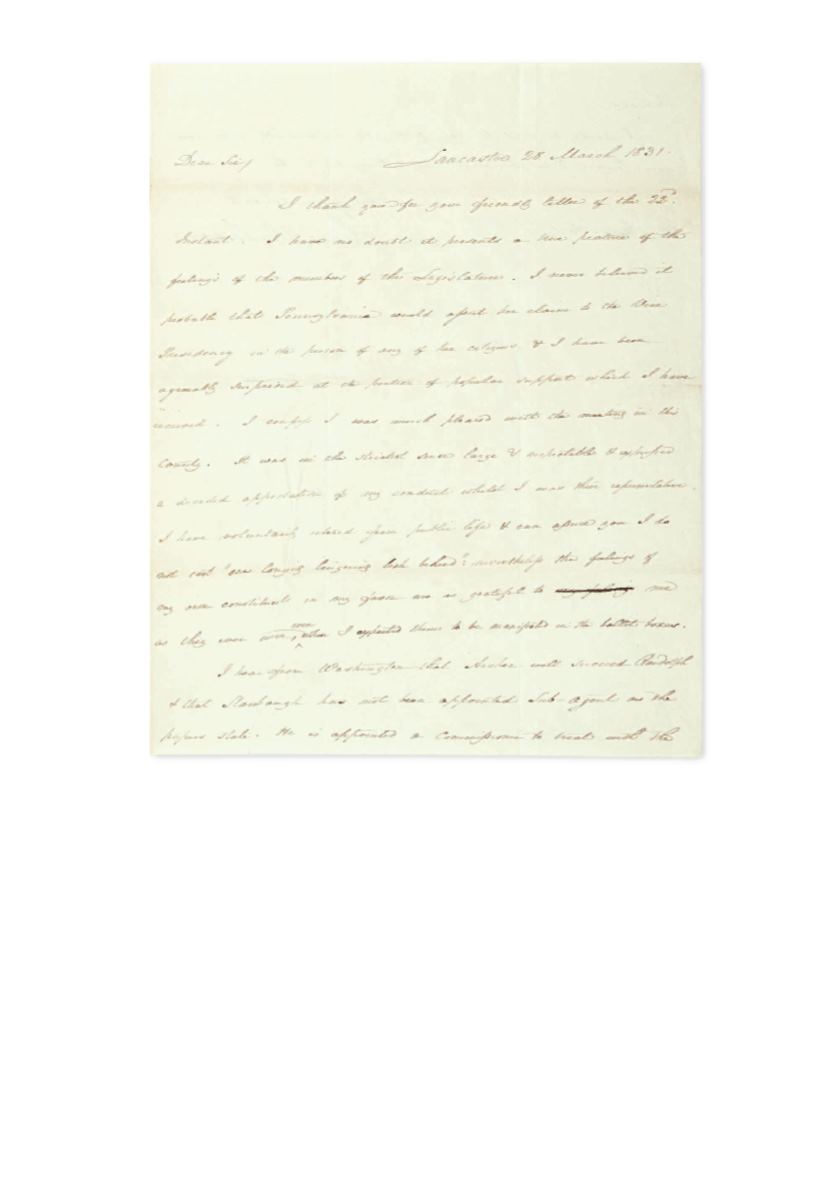 Dear Sir/ Lancaster 28 March 1831.
I thank you for your friendly letter of the 22d.
Instant. I have no doubt it presents a true picture of the
feelings of the members of the Legislature. I never believed it
probable that Pennsylvania would assert her claim to the Vice
Presidency in the person of any of her citizens & I have been
agreeably surprised at the portion of popular support which I have
received. I confess I was much pleased with the meeting in this
County. It was in the strictest sense large & respectable & expressed
a decided approbation of my conduct whilst I was their representative.
I have voluntarily retired from public life & can assure you I do
not cast "one longing lingering look behind": nevertheless the feelings of
my own constituents in my favor are as grateful to me
as they ever were, even when I expected them to be manifested in the ballot boxes.
I hear from Washington that Archer will succeed Randolph
& that Stambaugh has not been appointed Sub-agent as the
papers state. He is appointed a Commissioner to treat with the